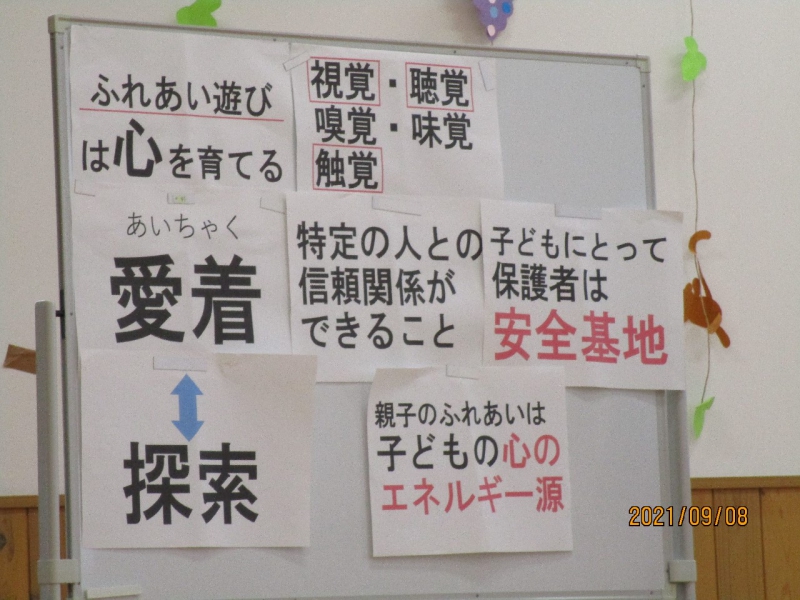 ふれあい遊び
は心を育てる
視覚・聴覚
嗅覚・味覚
触覚
あいちゃく
愛着
特定の人との
信頼関係が
できること
子どもにとって
保護者は
安全基地
探索
親子のふれあいは
子どもの心の
エネルギー源
2021/09/08